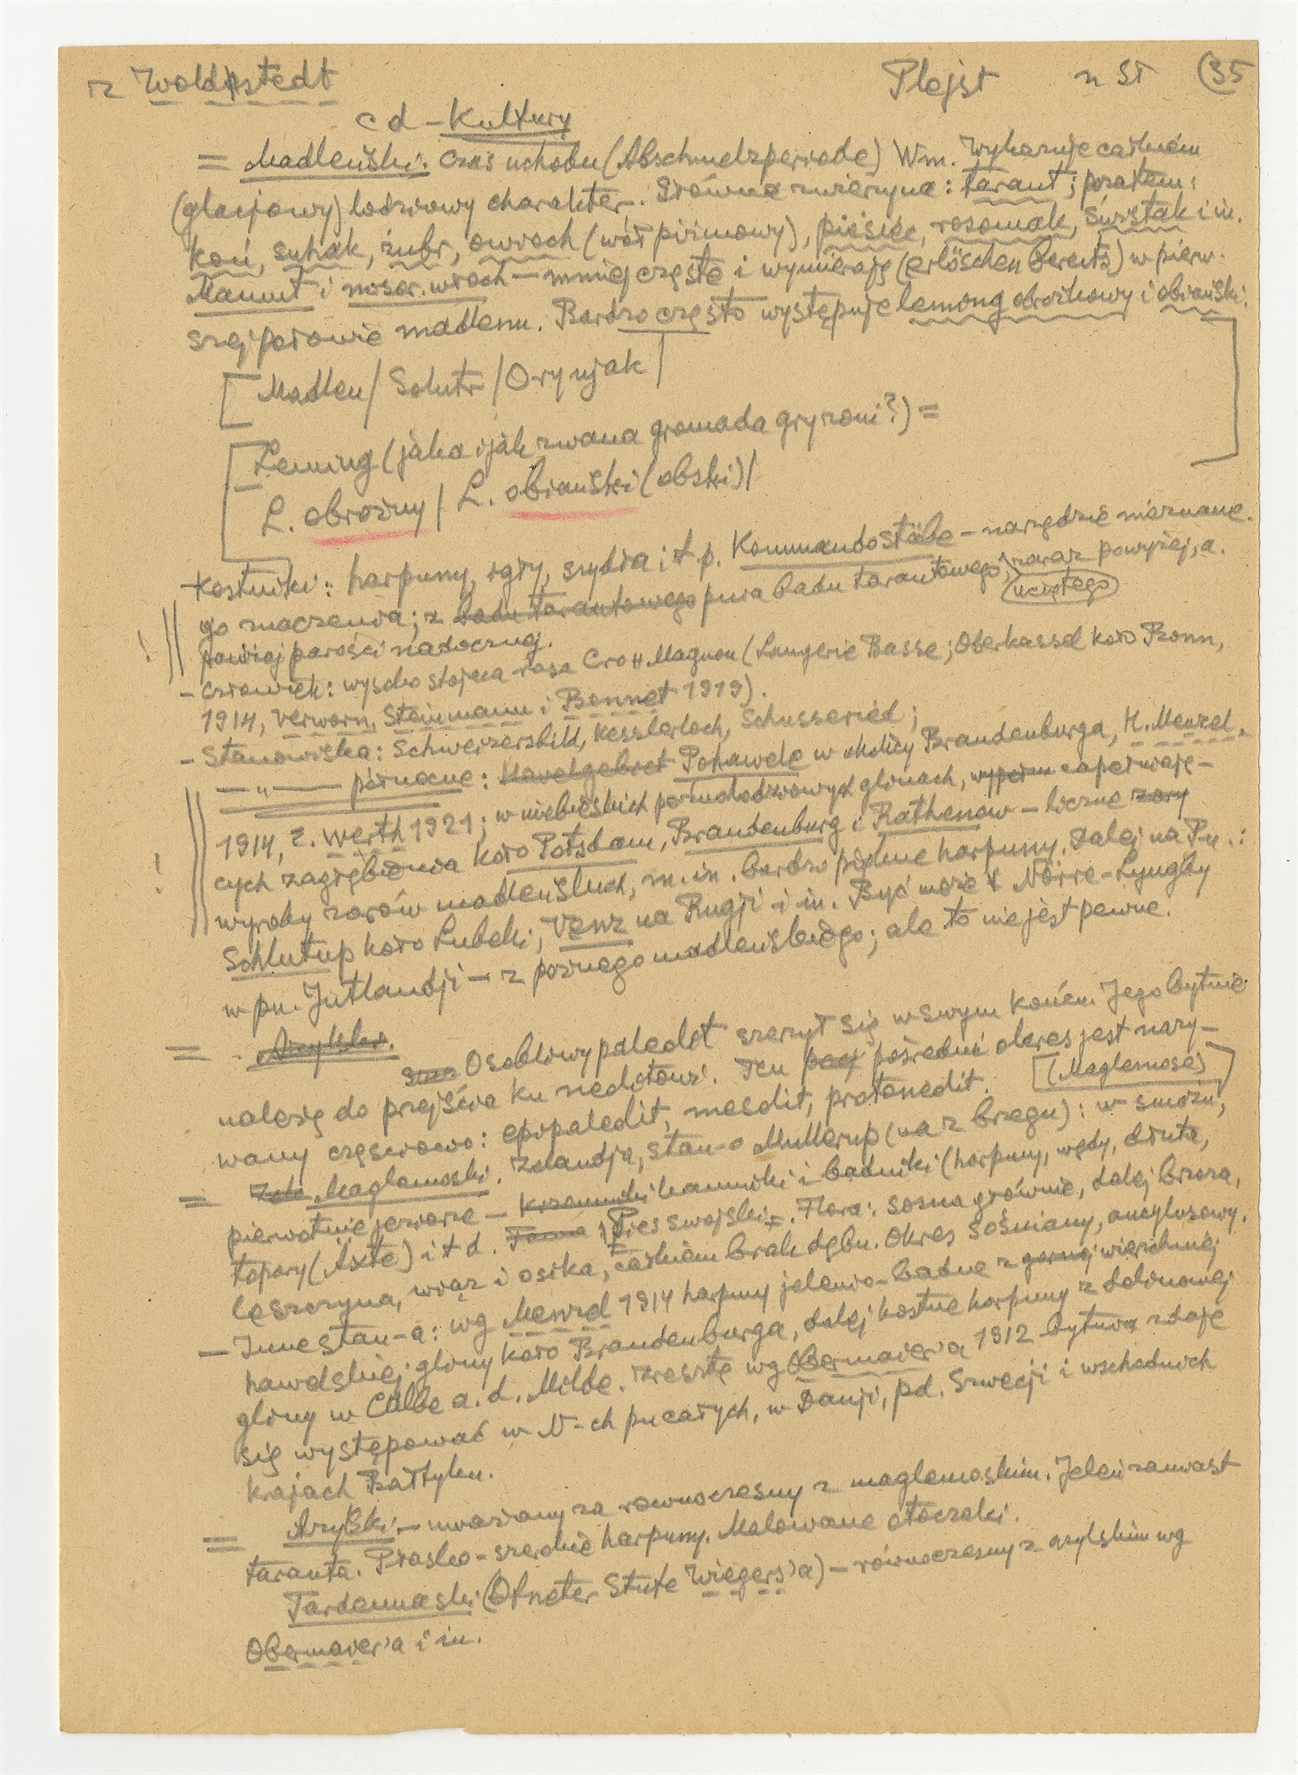 z Woldstedt Plejst n ST (35
cd – Kultury
= Madleński: czas uchodu (Abschmelzperiode) Wm. Wykazuje całkiem
(glacjowy) lodziowy charakter. Główna zwierzyna: tarant; pozatem:
koń, suhak, żubr, owioch (wół piżmowy), piesiec, rosomak, świstak i in.
Mamut i nosor. włoch – mniej częste i wymierają (erlöschen bereits) w pierw-
szej połowie madlenu. Bardzo często występuje leming obrożkowy i obiański.
[Madlen / Solutr / Orynjak |
[Leming (jaka i jak zwana gromada gryzoni?) =
L. obrożny / L. obiański (obski) |
Kostniki: harpuny, igły, szydła i t p. Kommandostäbe – narzędzie nieznane-
go znaczenia; z badu tarantowego pnia badu tarantowego, uciętego zaraz powyżej, a.
! powiej parości nadocznej.
– człowiek: wysoko stojąca rasa Cro Magnon (Laugerie Basse; Oberkassel koło Bonn,
1914, Verworn, Steinmann i Bonnet 1919).
– Stanowiska: Schweizersbild, Kesslerloch, Schussenried;
– „ – północne: Havelgebiet Pohawele w okolicy Brandenburga, H. Menzel,
1914, E. Werth 1921; w niebieskich połuchodziowych glinach, wypełn zapełniają-
! cych zagłębienia koło Potsdam, Brandenburg i Rathenow – liczne zary
wyroby zarów madleńskich, m. in. bardzo piękne harpuny. Dalej na Pn.:
Schlutup koło Lubeki, Venz na Rugji i in. Być może & Nörre-Lyngby
w pn. Jutlandji – z poźnego madleńskiego; ale to nie jest pewne.
= – Azylski.
Osobliwy paleolit szerzył się w swym końcu. Jego bytnie
należą do przejścia ku neolitowi. Ten pośredni okres jest nazy-
wany częściowo: epipaleolit, mesolit, protoneolit. [(Maglemose)]
= Zela Maglemoski. Zelandja, stan-o Mullerup (na z brzegu): w smożu,
pierwotnie jeziorze – krzemniki kamniki i badniki (harpuny, wędy, dłuta,
topory (Äxte) i t d. Fauna: Pies swojski. Flora: sosna głównie, dalej brzoza,
leszczyna, wiąz i osika, całkiem brak dębu. Okres sośniany, ancylusowy.
– Inne stan-a: wg Menzel 1914 harpuny jelenio-badne z górnej wierzchniej
hawelskiej gliny koło Brandenburga, dalej kostne harpuny z dolinowej
gliny w Calbe a. d. Milde. Zresztą wg Obermaier'a 1912 bytnia zdaje
się występować w N-ch pn całych, w Danji, pd. Szwecji i wschodnich
krajach Bałtyku.
= Azylski – uważany za równoczesny z maglemoskim. Jeleń zamiast
taranta. Płasko-szerokie harpuny. Malowane otoczaki.
Tardenuaski (Ofneter Stufe Wiegers'a) – równoczesny z azylskim wg
Obermaier'a i in.